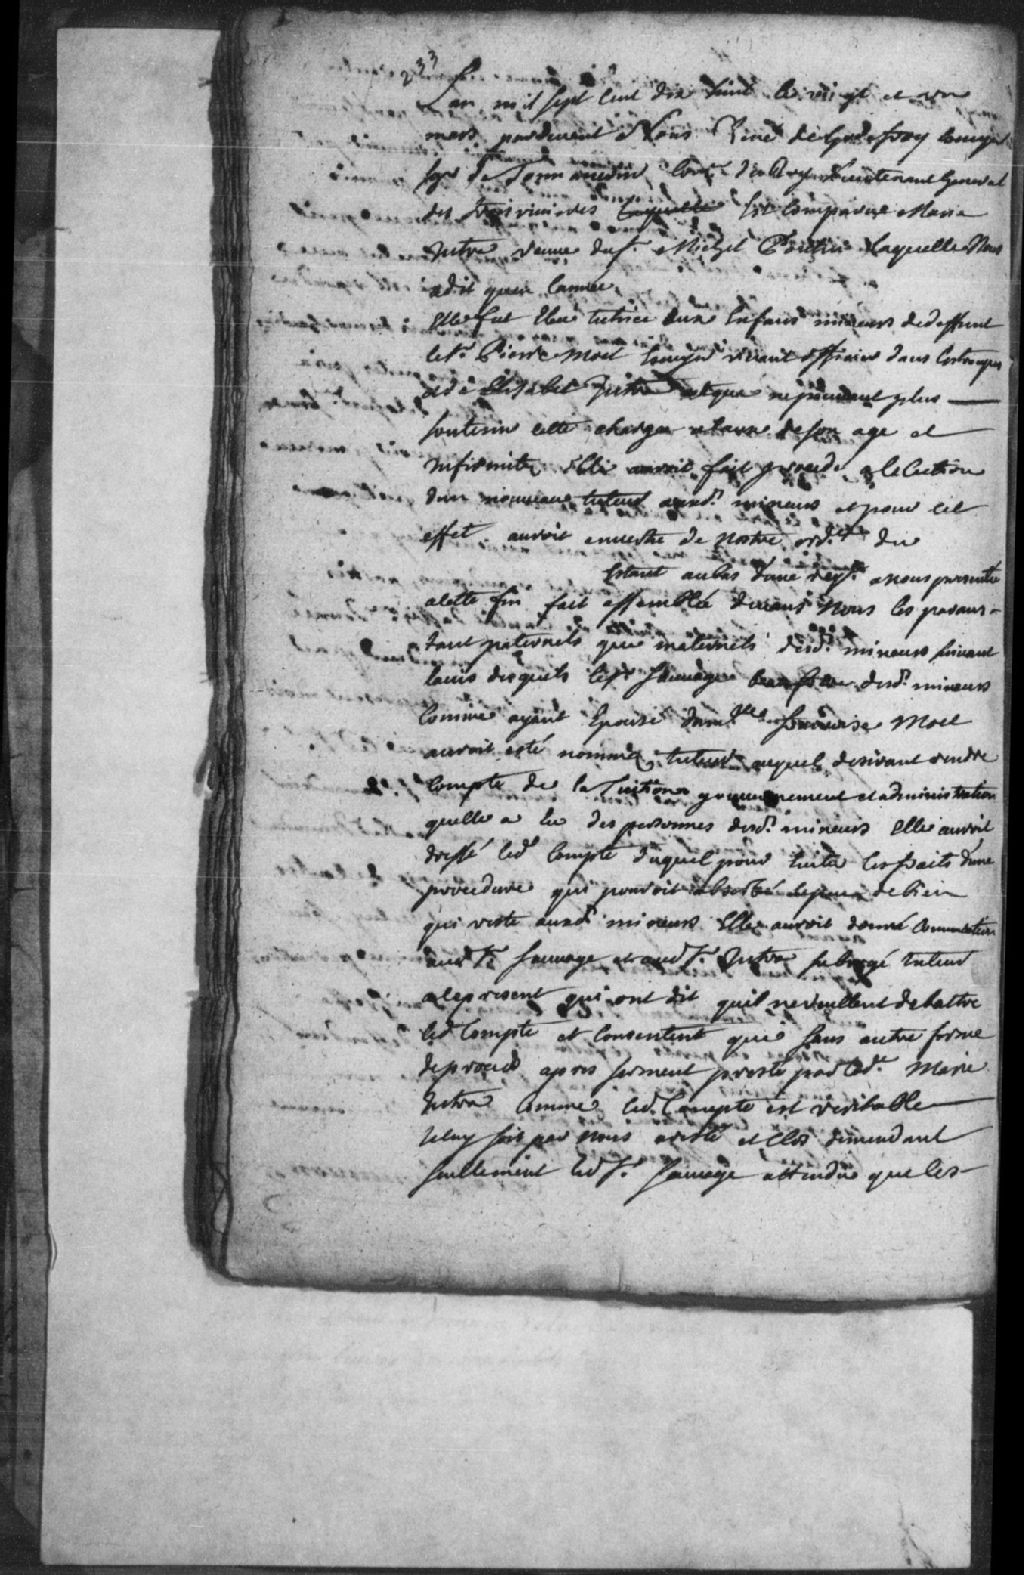 233
Lan mil sept cent dix huit le vingt et un
mars pardevant Nous René de Godefroy Escuyer
sgr de Tonnancour Conr du Roy Lieutenant General
des trois rivieres est comparüe Marie
Jutra veuve du f. Michel laquelle Nous
a dit quen lannee
Elle fut Elue tutrice aux Enfans mineurs de deffunt
le sr. Pierre Moet Escuyer vivant officier dans les troupes
et de Elisabet Jutra et que ne pouvant plus
soutenir cette charge a cause de son age et
infirmitez Elle auroit fait proceder a lelection
dun nouveau tuteur auxd. mineurs et pour cet
effet auroit en vertu de nostre ordce du
Estant au bas dune reqte a nous presentée
a cette fin fait assemblée devant Nous les parans
tant paternels que maternels desd. mineurs suivant
lavis desquels le sr Sauvage beaufrere desd. mineurs
Comme ayant Epousé damlle francoise Moet
auroit esté nommé tuteur auquel desirant rendre
Compte de la Tuition gouvernement et administration
quelle a eu des personnes desd. mineurs Elle auroit
dressé led. Compte duquel pour Eviter les fraits dune
procedure qui pouroit absorbé le peu de bien
qui reste auxd. mineurs Elle auroit donné Communication
aud. Sr. Sauvage et aud. Sr. Jutra subrogé tuteur
a ce present qui ont dit quil ne veullent debattre
led Compte et Consentent que sans autre forme
de proces apres serment presté par lad. Marie
Jutra Comme led. Compte est veritable
Iceluy soit par nous aresté et Clos demendant
seullement led Sr. Sauvage attendu que les